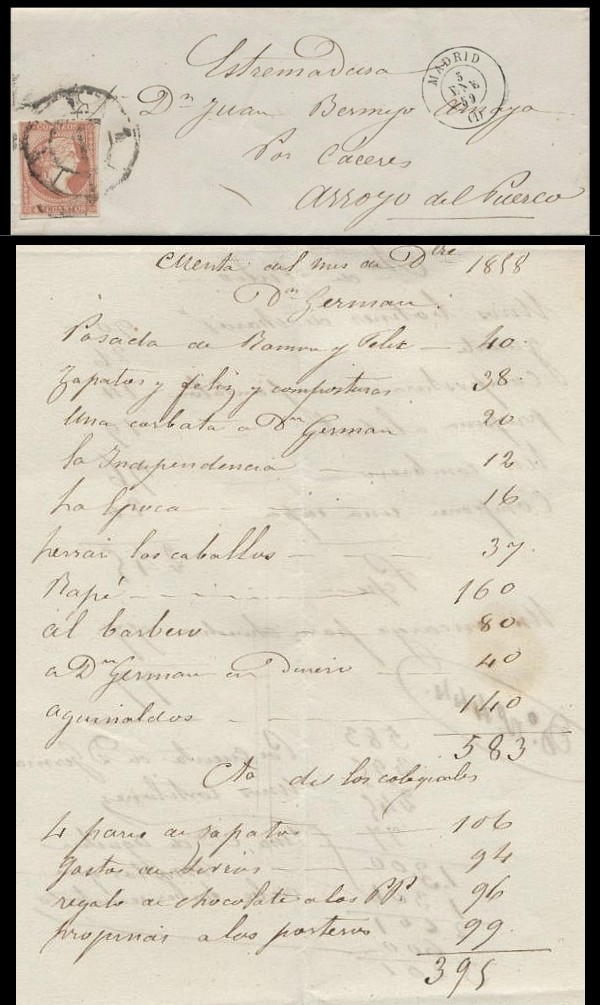 Estremadura
Dn Juan Bermejo Amaya
Por Cáceres
Arroyo del Puerco
MADRID
5
ENE
59
(1)
CORREOS
4 CUARTOS
Cuenta del mes de Dbre 1858
Dn German.
Posada de Ramon y Felix 40.
Zapatos y feliz y composturas 38.
Una corbata a Dn German 20
la Independencia 12
La Epoca 16
herrar los caballos 37.
Rapé 160
al barbero 80
a Dn German en Dinero 40
aguinaldos 140
583
Cta de los colegiales
4 pares de zapatos 106
Gastos de 94
regalo de chocolate a los PPs 96
propinas a los porteros 99.
395